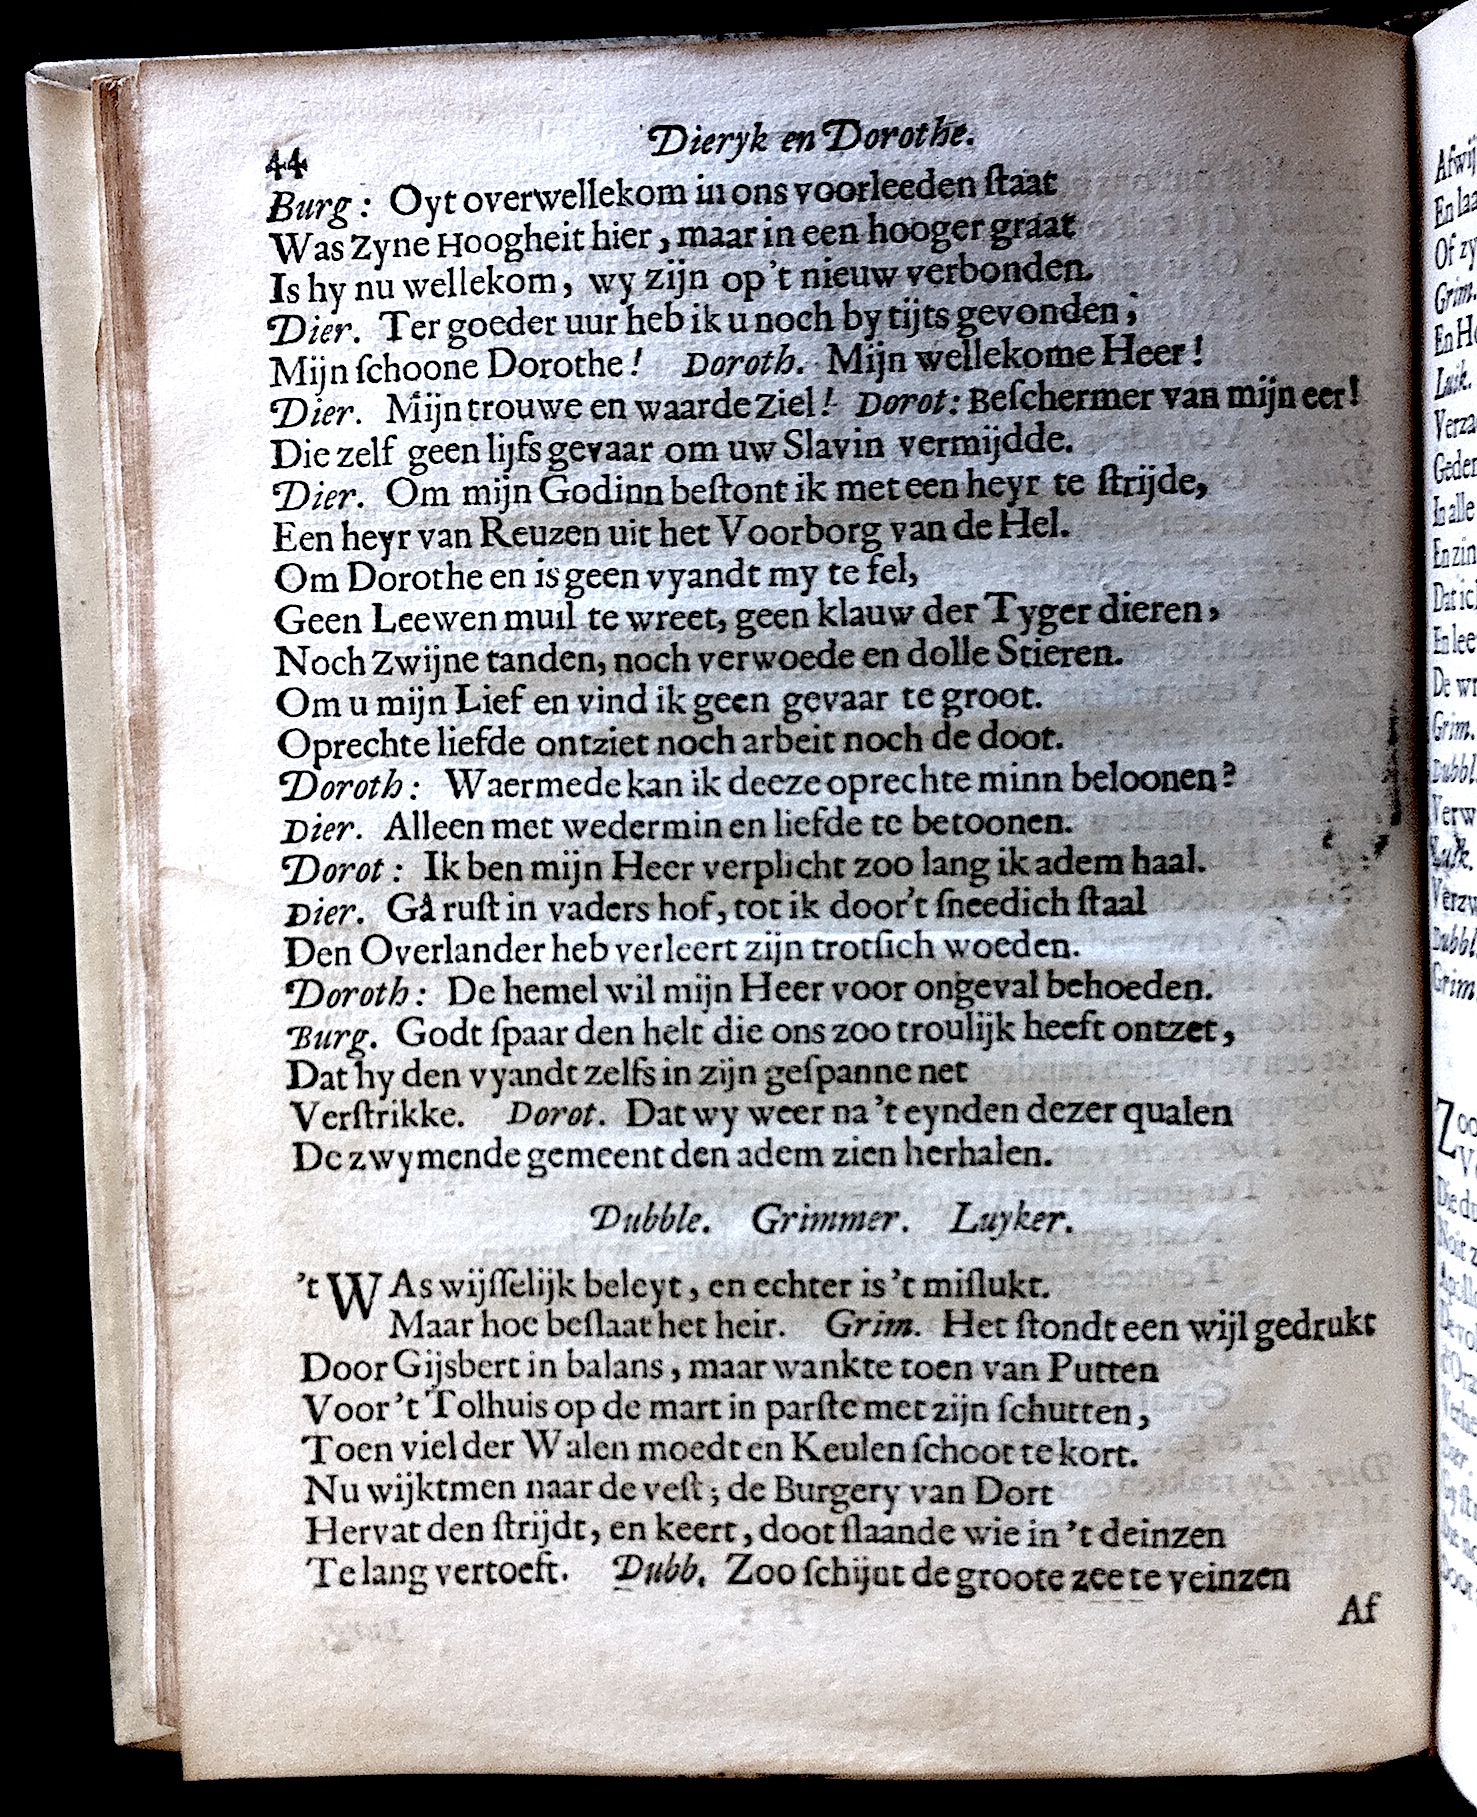 44 Dieryk en Dorothe.
Burg: Oyt overwellekom in ons voorleeden ſtaat
Was Zyne Hoogheit hier, maar in een hooger graat
Is hy nu wellekom, wy zijn op 't nieuw verbonden.
Dier. Ter goeder uur heb ik u noch by tijts gevonden;
Mijn ſchoone Dorothe! Doroth. Mijn wellekome Heer!
Dier. Mijn trouwe en waarde ziel! Dorot: Beſchermer van mijn eer!
Die zelf geen lijfs gevaar om uw Slavin vermijdde.
Dier. Om mijn Godinn beſtont ik met een heyr te ſtrijde,
Een heyr van Reuzen uit het Voorborg van de Hel.
Om Dorothe en is geen vyandt my te fel,
Geen Leewen muil te wreet, geen klauw der Tyger dieren,
Noch Zwijne tanden, noch verwoede en dolle Stieren.
Om u mijn Lief en vind ik geen gevaar te groot.
Oprechte liefde ontziet noch arbeit noch de doot.
Doroth: Waermede kan ik deeze oprechte minn beloonen?
Dier. Alleen met wedermin en liefde te betoonen.
Dorot: Ik ben mijn Heer verplicht zoo lang ik adem haal.
Dier. Gâ ruſt in vaders hof, tot ik door't ſneedich ſtaal
Den Overlander heb verleert zijn trotſich woeden.
Doroth: De hemel wil mijn Heer voor ongeval behoeden.
Burg. Godt ſpaar den helt die ons zoo troulijk heeft ontzet,
Dat hy den vyandt zelfs in zijn geſpanne net
Verſtrikke. Dorot. Dat wy weer na 't eynden dezer qualen
De zwymende gemeent den adem zien herhalen.
Dubble. Grimmer. Luyker.
't WAs wijſſelijk beleyt, en echter is 't miſlukt.
Maar hoe beſlaat het heir. Grim. Het ſtondt een wijl gedrukt
Door Gijsbert in balans, maar wankte toen van Putten
Voor 't Tolhuis op de mart in parſte met zijn ſchutten,
Toen viel der Walen moedt en Keulen ſchoot te kort.
Nu wijktmen naar de veſt; de Burgery van Dort
Hervat den ſtrijdt, en keert, doot ſlaande wie in 't deinzen
Te lang vertoeft. Dubb. Zoo ſchijnt de groote zee te veinzen
Af